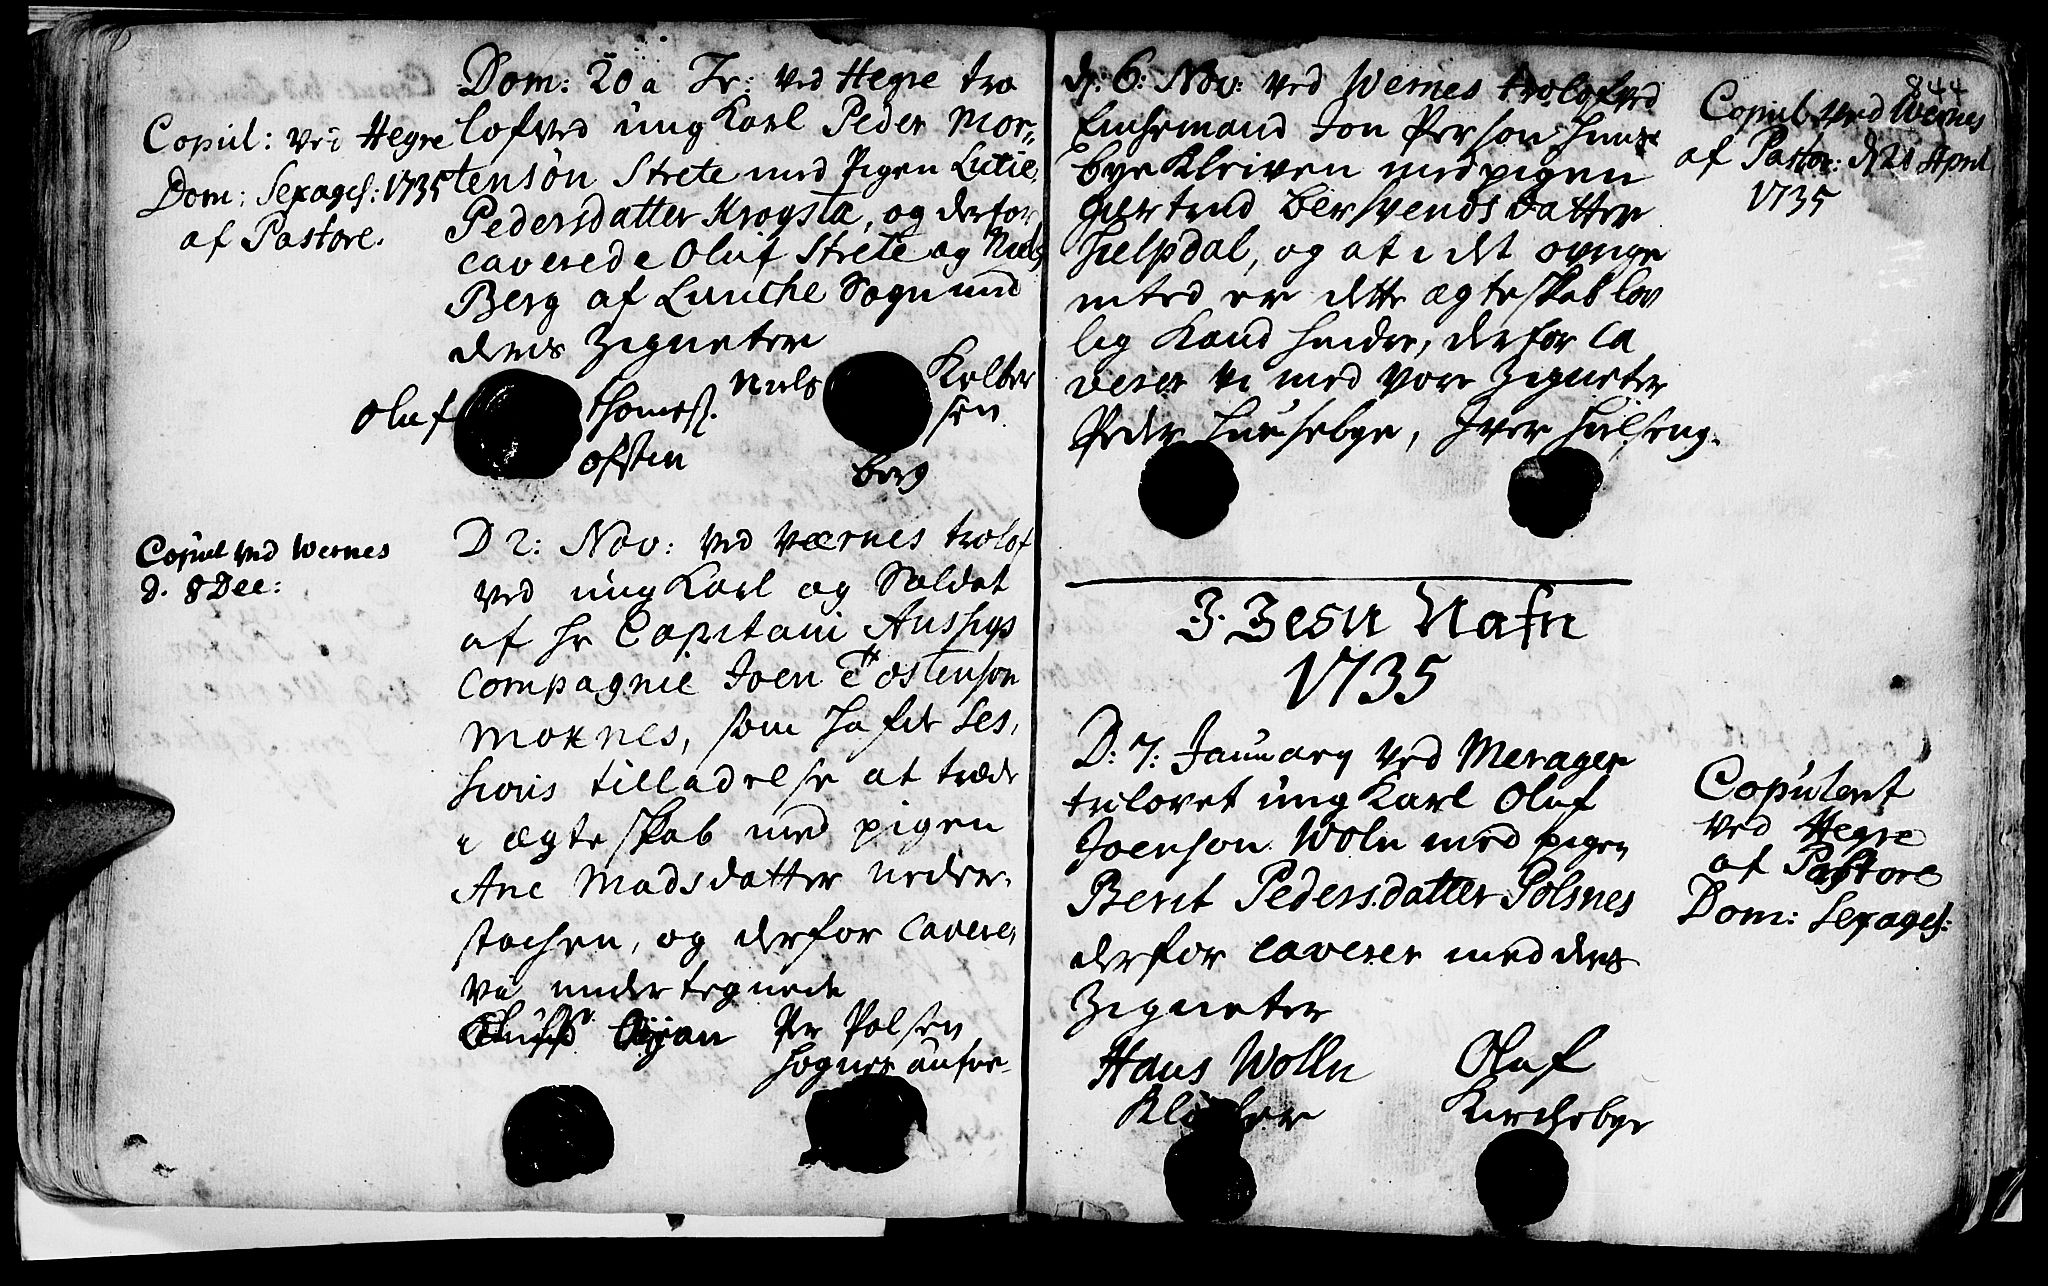 Copul: ved Hegre
Dom: Sexages: 1735
af Pastore.
Dom: 20 a Tr: ved Hegre tro
lofved ung Karl Peder Mor-
tensøn Strete med Pigen Lutie
Pedersdatter Krogsta, og derfor
caverede Oluf Strete og Niels
Berg af Lunche Sogn med
deris Zigneter
Oluf Thomess. Niels Kelber
sen
ofsten berg
Copul ved Wernes
d. 8 Dec:
D 2: Nov: ved Værnes trolof
ved ung Karl og Soldat
af Hr Capitain
Compagnie Joen Tostenson
Moxnes, som hafde Ses,
sions tilladelse at træde
i ægteskab med pigen
Ane Madsdatter neder,
stochen, og derfor caverer
vi undertegnede
Øyan Pr Polsen
844
d. 6: Nov: ved Wernes trolofved
Enchemand Jon Person Huuse
bye Kleiven med pigen
giertrud Bersvends datter
Hielpdal, og at i det øvrige
inted er dette ægteskab lov
lig Kand hindre, derfor ca
verer vi med vore Zigneter
Peder Huusebye, Iver Hielseng.
Copul. ved Wernes
af Pastor: d. 21 April
1735
J. Jesu Nafn
1735
D: 7: January ved Merager
trolovet ung Karl Oluf
Joenson Woln med pigen
Berit Pedersdatter Polsnes
derfor caverer med deres
Zigneter
Hans Wolln Oluf
Klocher Kirchebye
Copulerit
ved Hegre
af Pastore
Dom: Sexages: